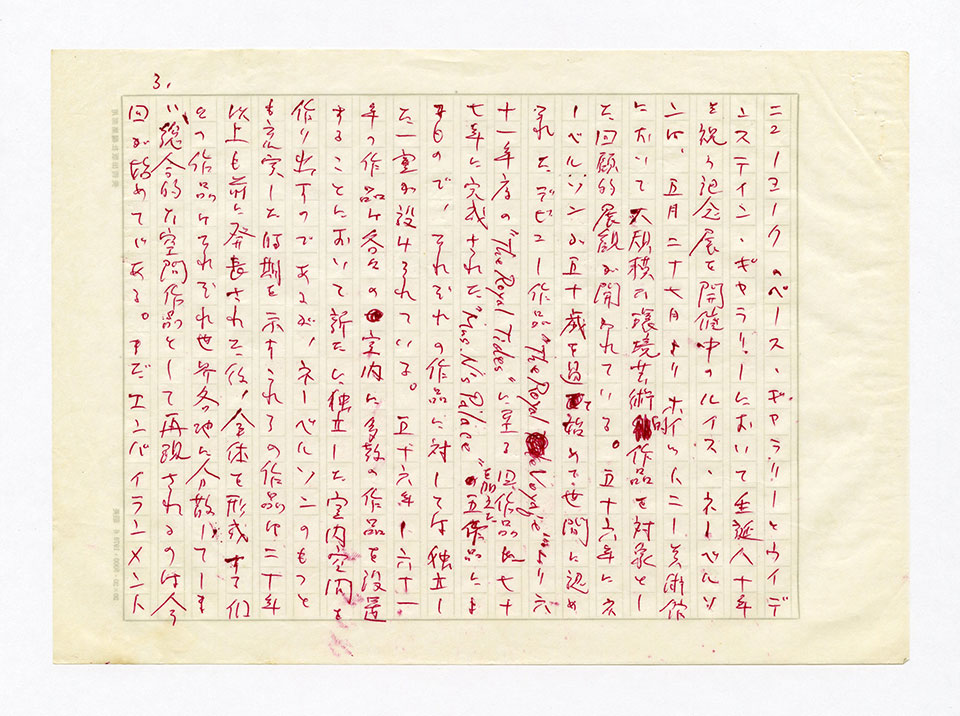 3.
ニューヨークのペース・ギャラリーとウイデ
ンステイン・ギャラリーにおいて生誕八十年
を祝う記念展を開催中のルイス・ネーベルソ
ンは、五月二十七日よりホイットニー美術館
において大規模の環境芸術的作品を対象とし
た回顧的展観が開かれている。五十六年にネ
ーベルソンが五十歳を過ぎて始めて世間に認め
られたデビュー作品"The Royal Voyage"より六
十一年度の"The Royal Tides"に至る四作品と七十
七年に完成された"Mrs. N's Palace"の五作品によ
るもので、それぞれの作品に対しては独立し
た一室が設けられている。五十六年−六十一
年の作品は各々の室内に多数の作品を設置
することにおいて新たに独立した室内空間を
作り出すのであるが、ネーベルソンのもっと
も充実した時期を示すこれらの作品は二十年
以上も前に発表された後、全体を形成する
個々の作品はそれぞれ世界各地に分散してしま
い総合的な空間作品として再現されるのは今
回が始めてである。まだエンバイランメント